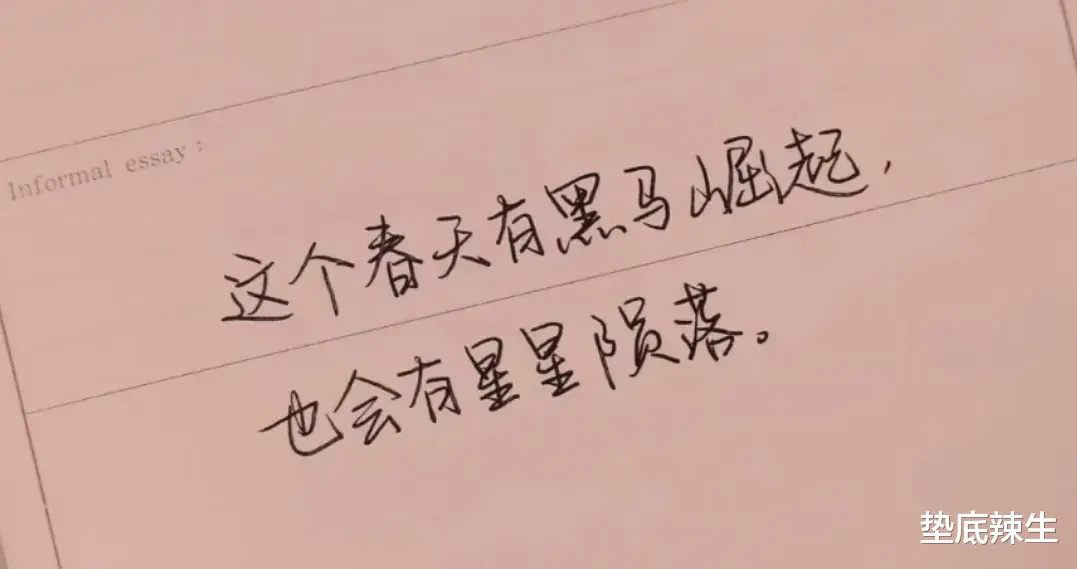 Informal essay:
这个春天有黑马崛起,
也会有星星陨落。
垫底辣生